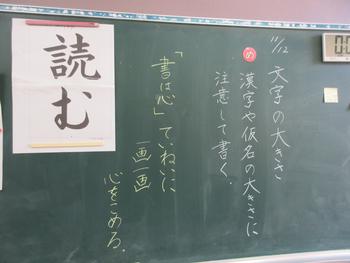 11/12 文字の大きさ
め 漢字や仮名の大きさに
注意して書く.
「書は心」ていねいに
一画一画
心をこめる.
読む